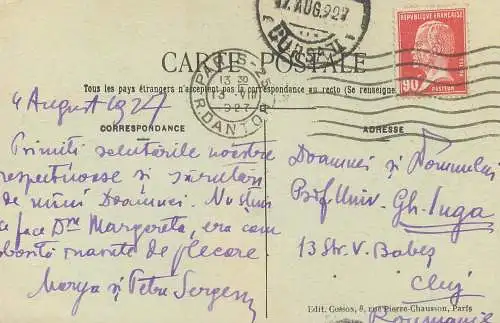 17. AUG. 927
CARTE POSTALE
RÉPUBLIQUE FRANÇAISE
90c
PASTEUR
PARIS-25
13 30
13 VIII
927
R DANTON
Tous les pays étrangers n'acceptent pas la correspondance au recto (Se renseigne
4 August 1927
CORRESPONDANCE
ADRESSE
Primiti salutările noastre
respectuoase și sărutări
de mâini Doamnei. Nu știu
ce face Dra Margareta, era cam
înainte de plecare
Marya și Petru Sergescu
Doamnei și Domnului
Prof. Univ. Gh. Iuga
13 Str. V. Babeș
Cluj
Roumanie
Edit. Cosson, 8, rue Pierre-Chausson, Paris